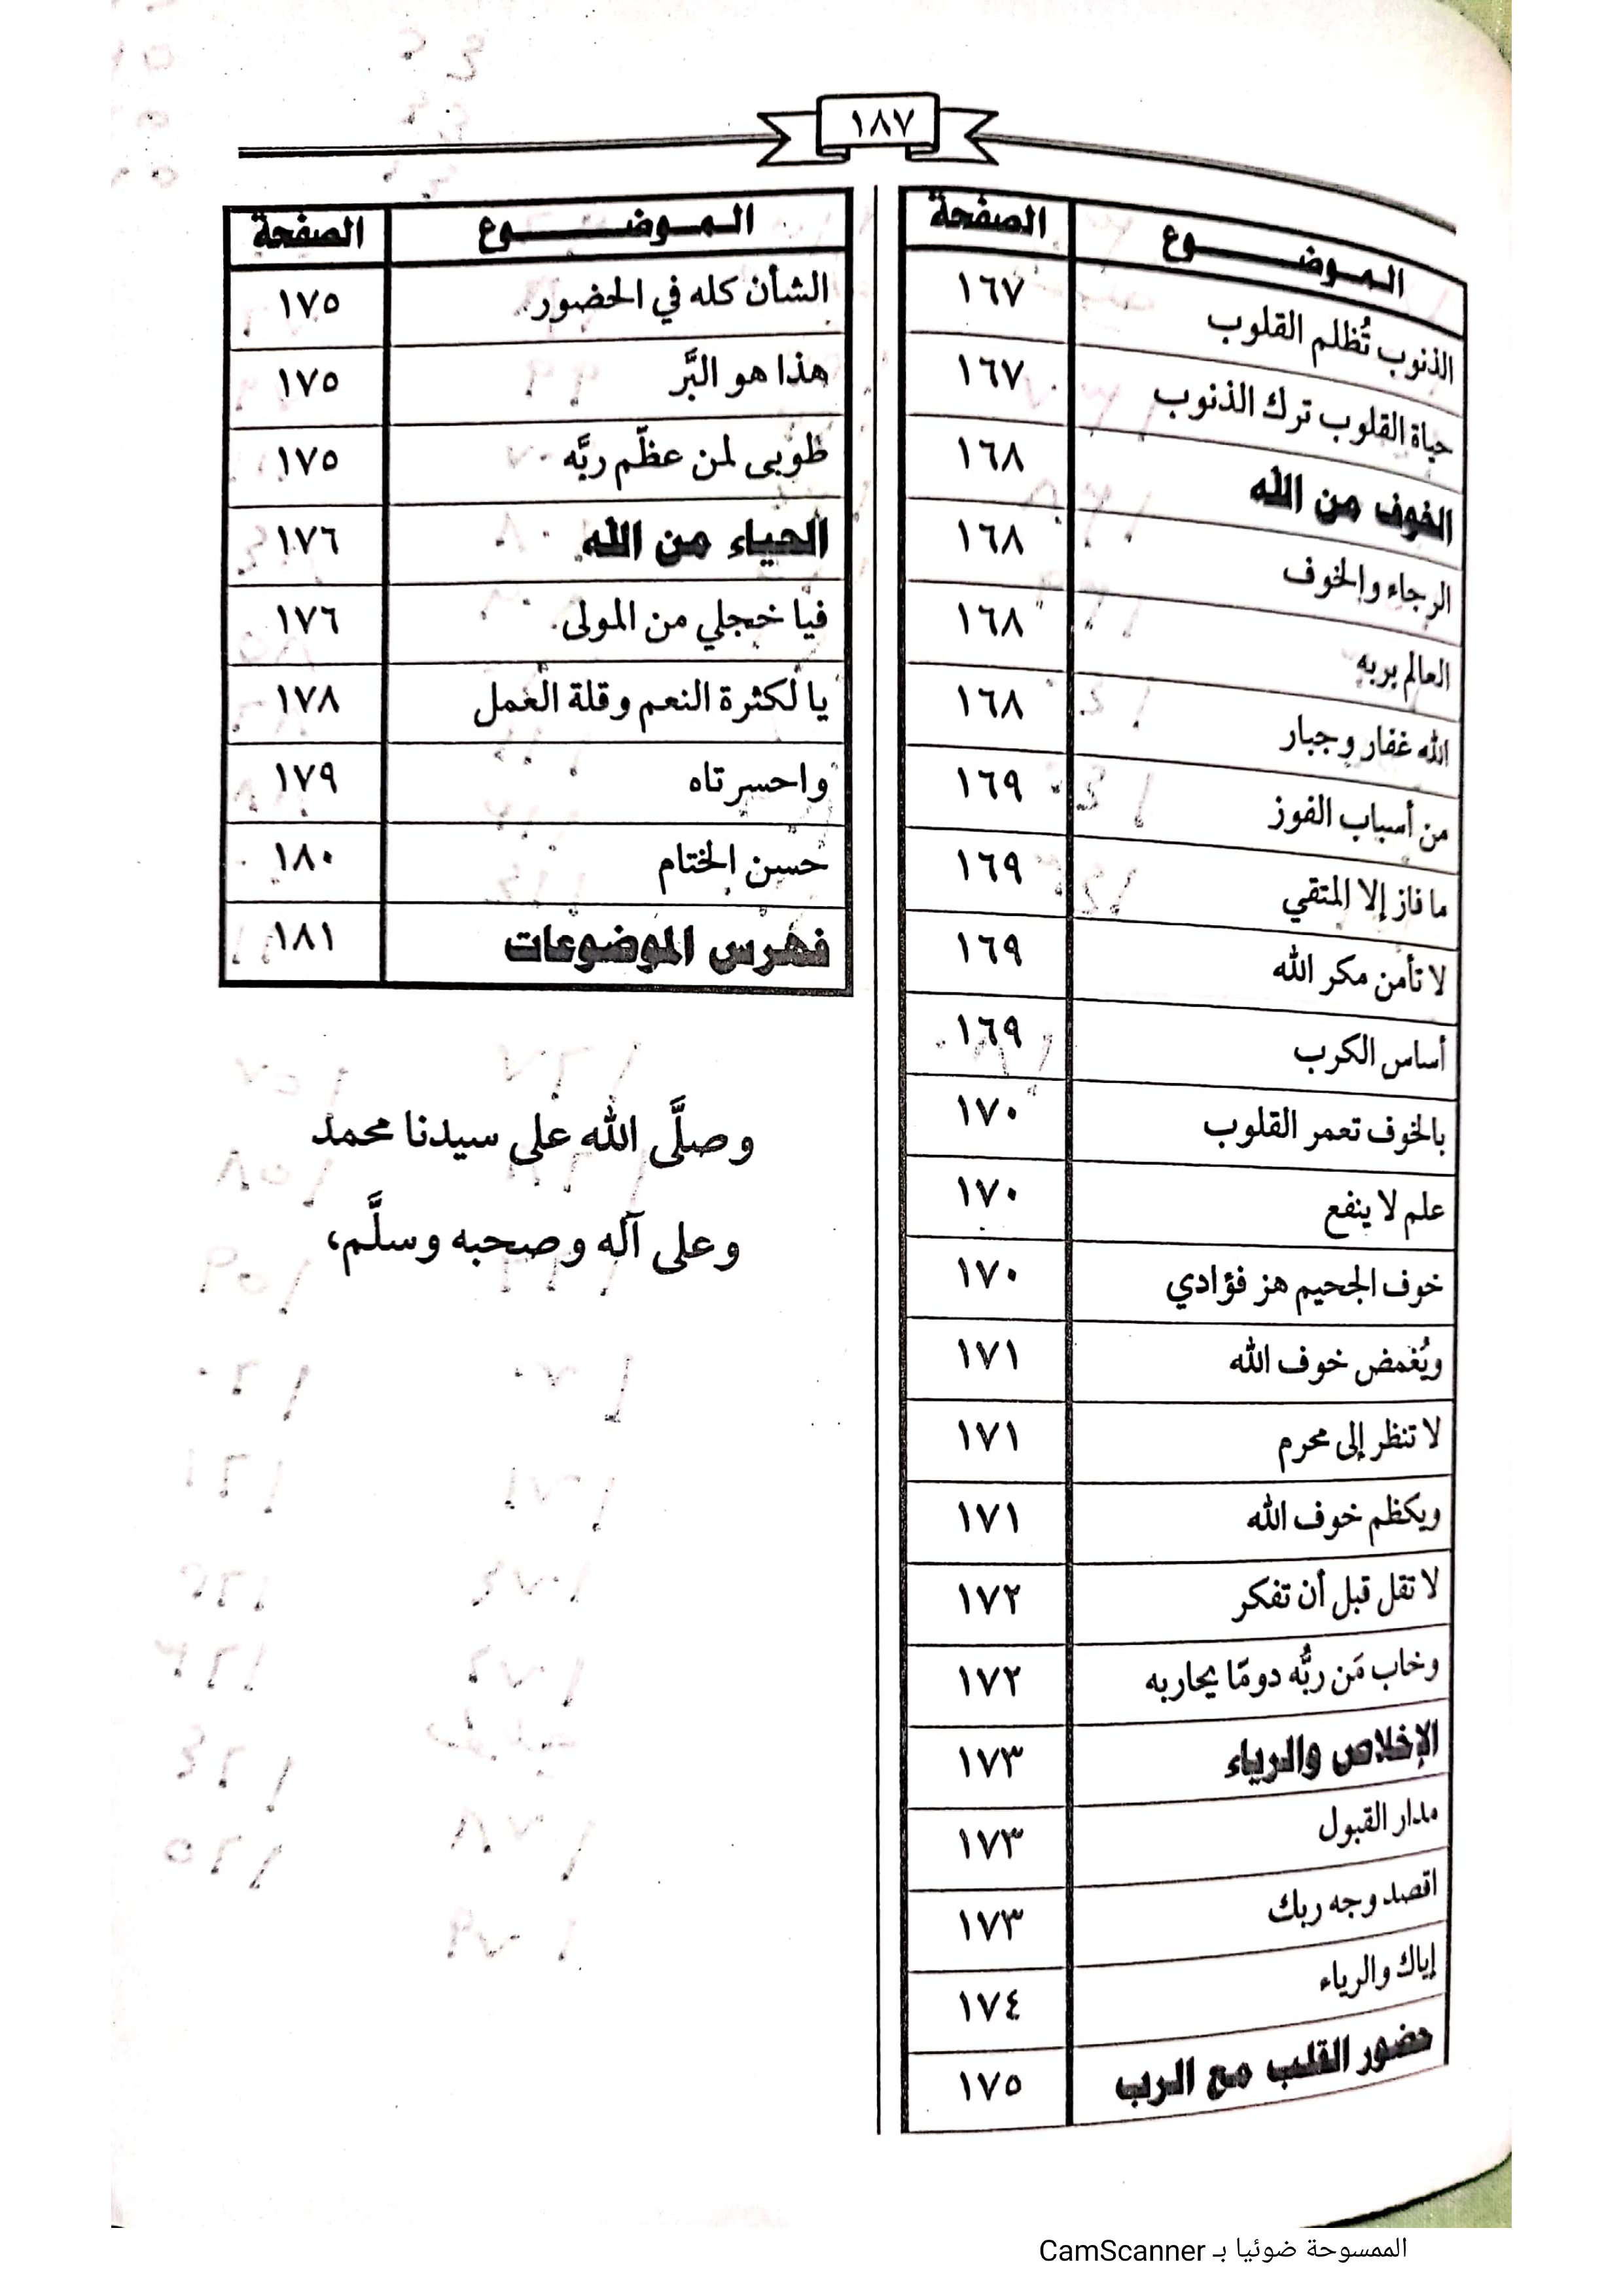 ١٨٧
الموضوع الصفحة
الذنوب تُظلم القلوب ١٦٧
حياة القلوب ترك الذنوب ١٦٧
الخوف من الله ١٦٨
الرجاء والخوف ١٦٨
العالم بربه ١٦٨
الله غفار وجبار ١٦٨
من أسباب الفوز ١٦٩
ما فاز إلا المتقي ١٦٩
لا تأمن مكر الله ١٦٩
أساس الكرب ١٦٩
بالخوف تعمر القلوب ١٧٠
علم لا ينفع ١٧٠
خوف الجحيم هز فؤادي ١٧٠
ويُغمض خوف الله ١٧١
لا تنظر إلى محرم ١٧١
ويكظم خوف الله ١٧١
لا تقل قبل أن تفكر ١٧٢
وخاب مَن ربُّه دومًا يحاربه ١٧٢
الإخلاص والرياء ١٧٣
مدار القبول ١٧٣
اقصد وجه ربك ١٧٣
إياك والرياء ١٧٤
حضور القلب مع الرب ١٧٥
الموضوع الصفحة
الشأن كله في الحضور ١٧٥
هذا هو البَّر ١٧٥
طوبى لمن عظّم ربَّه ١٧٥
الحياء من الله ١٧٦
فيا خجلي من المولى ١٧٦
يا لكثرة النعم وقلة العمل ١٧٨
واحسرتاه ١٧٩
حسن الختام ١٨٠
فهرس الموضوعات ١٨١
وصلَّى الله على سيدنا محمد
وعلى آله وصحبه وسلَّم،
الممسوحة ضوئيا بـ CamScanner